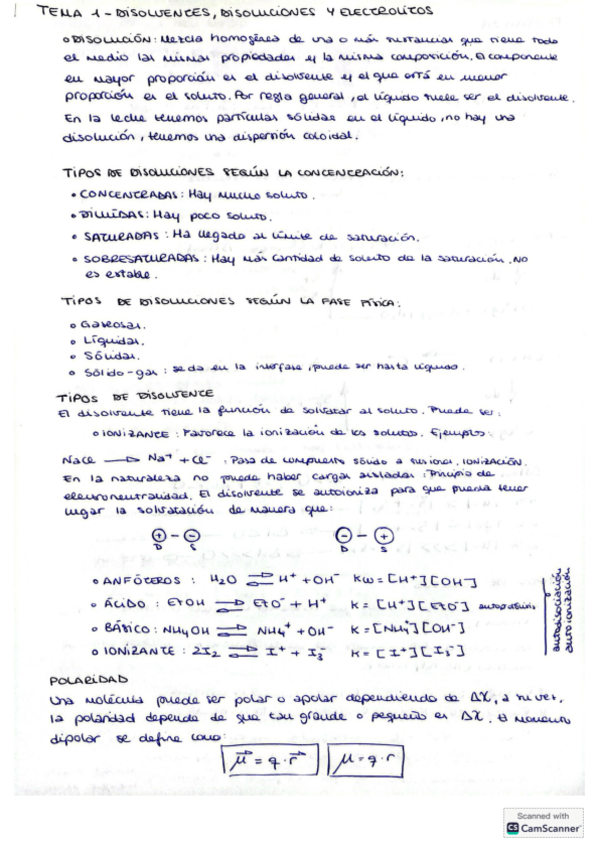 TEMA 1 - DISOLVENTES, DISOLUCIONES Y ELECTROLITOS
• DISOLUCIÓN: Mezcla homogénea de una o más sustancias que tiene todo
el medio las mismas propiedades y la misma composición. El componente
en mayor proporción es el disolvente y el que está en menor
proporción es el soluto. Por regla general, el líquido suele ser el disolvente.
En la leche tenemos partículas sólidas en el líquido, no hay una
disolución, tenemos una dispersión coloidal.
TIPOS DE DISOLUCIONES SEGÚN LA CONCENTRACIÓN:
• CONCENTRADAS: Hay mucho soluto.
• DILUÍDAS: Hay poco soluto.
• SATURADAS: Ha llegado al límite de saturación.
• SOBRESATURADAS: Hay más cantidad de soluto de la saturación. No
es estable.
TIPOS DE DISOLUCIONES SEGÚN LA FASE FÍSICA:
• Gaseosas.
• Líquidas.
• Sólidas.
• Sólido-gas: se da en la interfase, puede ser hasta líquido.
TIPOS DE DISOLVENTE
El disolvente tiene la función de solvatar al soluto. Puede ser:
• IONIZANTE: Favorece la ionización de los solutos. Ejemplo:
NaCl → Na⁺ + Cl⁻ : Pasa de compuesto sólido a sus iones. IONIZACIÓN.
En la naturaleza no puede haber cargas aisladas: Principio de
electroneutralidad. El disolvente se autoioniza para que pueda tener
lugar la solvatación de manera que:
⊕ - ⊖ ⊖ - ⊕
D S D S
• ANFÓTEROS: H₂O ⇌ H⁺ + OH⁻ Kω = [H⁺][OH⁻]
• ÁCIDO: EtOH ⇌ EtO⁻ + H⁺ K = [H⁺][EtO⁻]
• BÁSICO: NH₄OH ⇌ NH₄⁺ + OH⁻ K = [NH₄⁺][OH⁻]
• IONIZANTE: 2I₂ ⇌ I⁺ + I₃⁻ K = [I⁺][I₃⁻]
autodisociación
autoionización
POLARIDAD
Una molécula puede ser polar o apolar dependiendo de ΔX, a su vez,
la polaridad depende de que tan grande o pequeño es ΔX. El momento
dipolar se define como:
μ⃗ = q · r⃗ μ = q · r
Scanned with
CS CamScanner